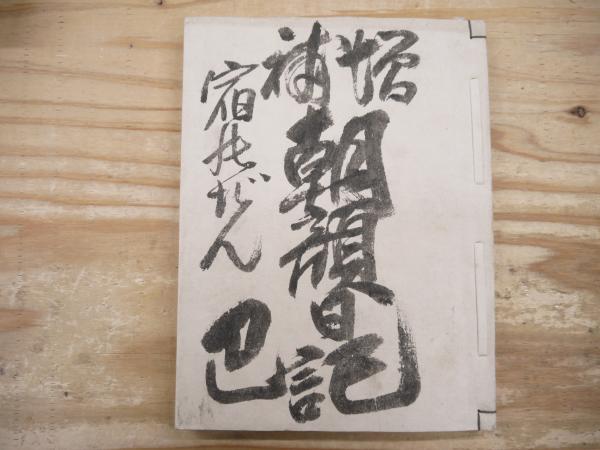 増補
朝顔日記
宿屋だん